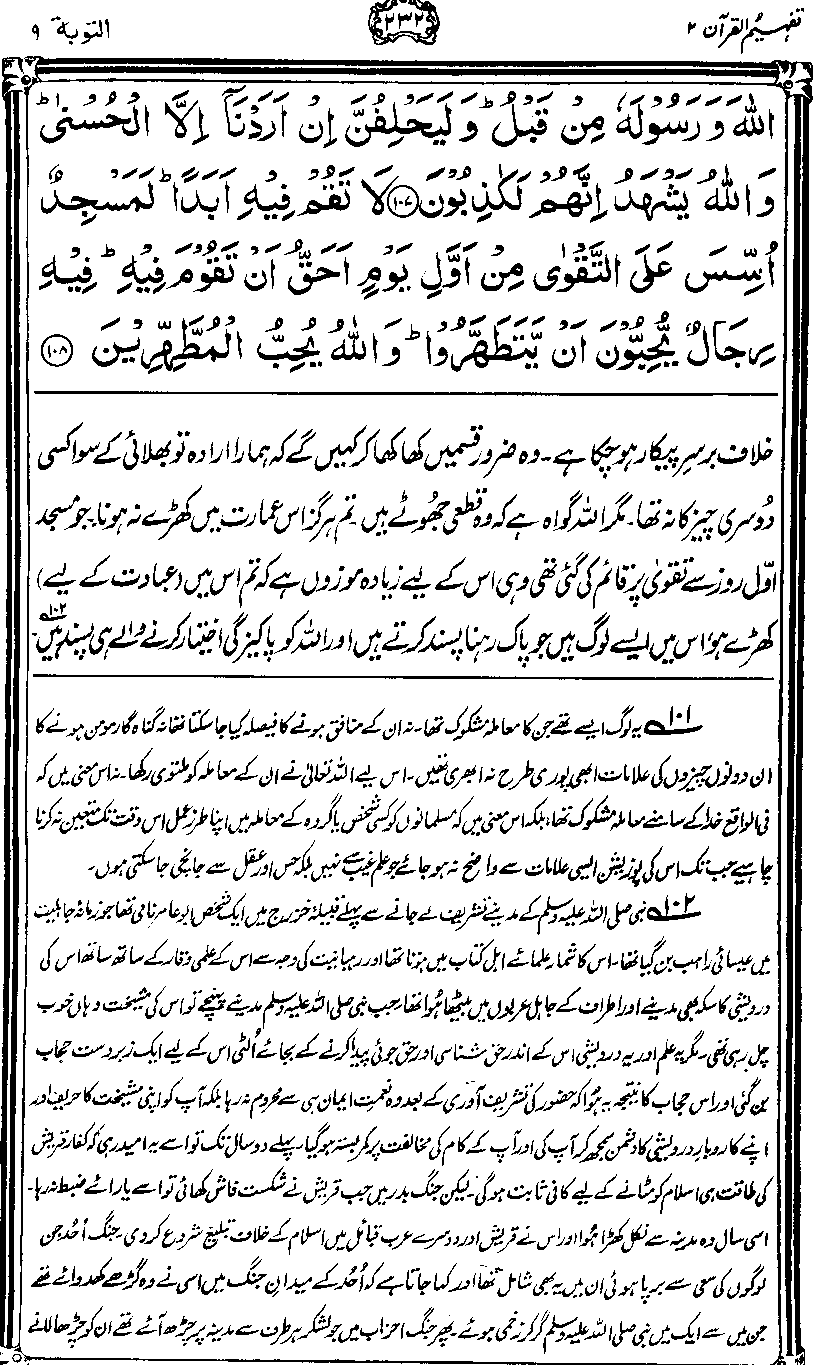 تفہیم القرآن ۲
۲۳۲
التوبة ۹
اللهَ وَرَسُوْلَهٗ مِنْ قَبْلُ ؕ وَلَيَحْلِفُنَّ اِنْ اَرَدْنَاۤ اِلَّا الْحُسْنٰى ؕ
وَاللهُ يَشْهَدُ اِنَّهُمْ لَكٰذِبُوْنَ ﴿۱۰۷﴾ لَا تَقُمْ فِيْهِ اَبَدًا ؕ لَمَسْجِدٌ
اُسِّسَ عَلَى التَّقْوٰى مِنْ اَوَّلِ يَوْمٍ اَحَقُّ اَنْ تَقُوْمَ فِيْهِ ؕ فِيْهِ
رِجَالٌ يُّحِبُّوْنَ اَنْ يَّتَطَهَّرُوْا ؕ وَاللهُ يُحِبُّ الْمُطَّهِّرِيْنَ ﴿۱۰۸﴾
خلاف برسرِ پیکار ہو چکا ہے۔ وہ ضرور قسمیں کھا کھا کر کہیں گے کہ ہمارا ارادہ تو بھلائی کے سوا کسی
دُوسری چیز کا نہ تھا۔ مگر اللہ گواہ ہے کہ وہ قطعی جھُوٹے ہیں۔ تم ہرگز اس عمارت میں کھڑے نہ ہونا۔ جو مسجد
اوّل روز سے تقویٰ پر قائم کی گئی تھی وہی اس کے لیے زیادہ موزوں ہے کہ تم اس میں (عبادت کے لیے)
کھڑے ہو، اس میں ایسے لوگ ہیں جو پاک رہنا پسند کرتے ہیں اور اللہ کو پاکیزگی اختیار کرنے والے ہی پسند ہیں۱۰۲۔
۱۰۱؎ یہ لوگ ایسے تھے جن کا معاملہ مشکوک تھا۔ نہ ان کے منافق ہونے کا فیصلہ کیا جا سکتا تھا نہ گناہ گار مومن ہونے کا
ان دونوں چیزوں کی علامات ابھی پوری طرح نہ ابھری تھیں۔ اس لیے اللہ تعالیٰ نے ان کے معاملہ کو ملتوی رکھا۔ نہ اس معنی میں کہ
فی الواقع خدا کے سامنے معاملہ مشکوک تھا، بلکہ اس معنی میں کہ مسلمانوں کو کسی شخص یا گروہ کے معاملہ میں اپنا طرزِ عمل اس وقت تک متعین نہ کرنا
چاہیے جب تک اس کی پوزیشن ایسی علامات سے واضح نہ ہو جائے جو علمِ غیب سے نہیں بلکہ حس اور عقل سے جانچی جا سکتی ہوں۔
۱۰۲؎ نبی صلی اللہ علیہ وسلم کے مدینے تشریف لے جانے سے پہلے قبیلہ خزرج میں ایک شخص ابو عامر نامی تھا جو زمانہ جاہلیت
میں عیسائی راہب بن گیا تھا۔ اس کا شمار علمائے اہل کتاب میں ہوتا تھا اور رہبانیت کی وجہ سے اس کے علمی وقار کے ساتھ ساتھ اس کی
درویشی کا سکہ بھی مدینے اور اطراف کے جاہل عربوں میں بیٹھا ہُوا تھا۔ جب نبی صلی اللہ علیہ وسلم مدینے پہنچے تو اس کی مشیخت وہاں خوب
چل رہی تھی۔ مگر یہ علم اور یہ درویشی اس کے اندر حق شناسی اور حق جوئی پیدا کرنے کے بجائے اُلٹی اس کے لیے ایک زبردست حجاب
بن گئی اور اس حجاب کا نتیجہ یہ ہُوا کہ حضور کی تشریف آوری کے بعد وہ نعمتِ ایمان ہی سے محروم نہ رہا بلکہ آپ کو اپنی مشیخت کا حریف اور
اپنے کاروبارِ درویشی کا دشمن سمجھ کر آپ کی اور آپ کے کام کی مخالفت پر کمربستہ ہو گیا۔ پہلے دو سال تک تو اسے یہ امید رہی کہ کفارِ قریش
کی طاقت ہی اسلام کو مٹانے کے لیے کافی ثابت ہو گی۔ لیکن جنگِ بدر میں جب قریش نے شکستِ فاش کھائی تو اسے یارائے ضبط نہ رہا۔
اسی سال وہ مدینہ سے نکل کھڑا ہُوا اور اس نے قریش اور دوسرے عرب قبائل میں اسلام کے خلاف تبلیغ شروع کر دی۔ جنگ اُحد جن
لوگوں کی سعی سے برپا ہوئی ان میں یہ بھی شامل تھا اور کہا جاتا ہے کہ اُحُد کے میدانِ جنگ میں اسی نے وہ گڑھے کھدوائے تھے
جن میں سے ایک میں نبی صلی اللہ علیہ وسلم گر کر زخمی ہوئے۔ پھر جنگ احزاب میں جو لشکر ہر طرف سے مدینہ پر چڑھ آئے تھے ان کو چڑھا لانے